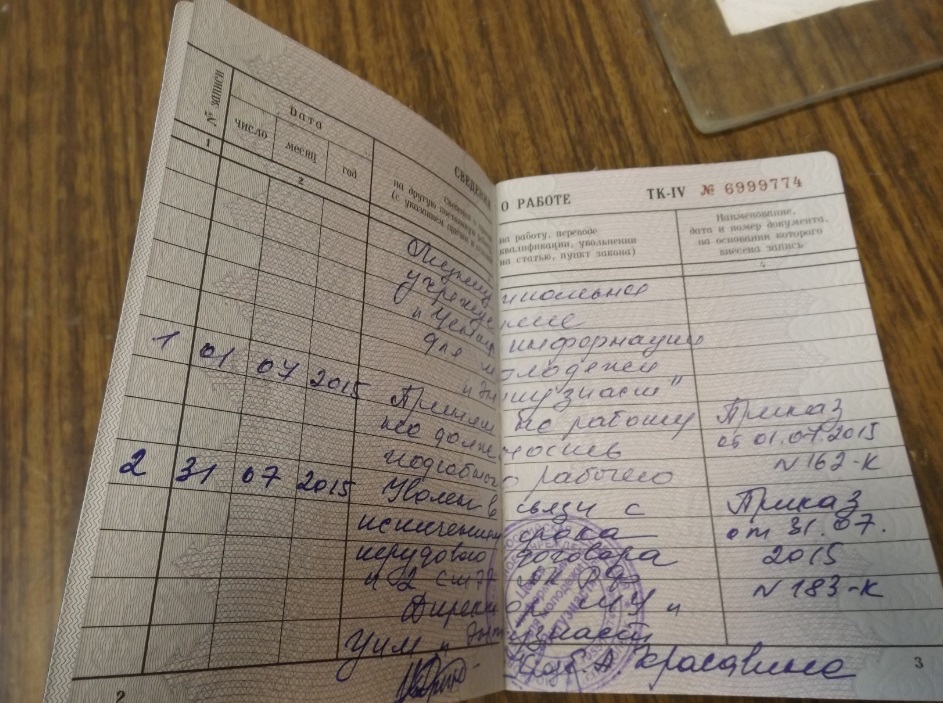 СВЕДЕНИЯ О РАБОТЕ
ТК-IV № 6999774
№ записи
Дата
число
месяц
год
на работу, переводе
квалификации, увольнении
на статью, пункт закона)
Наименование,
дата и номер документа,
на основании которого
внесена запись
1
2
4
информации
для молодежи
"
1 01 07 2015
Принят на работу
по должности
подсобного рабочего
Приказ
от 01.07.2015
N 162-К
2 31 07 2015
Уволен в связи с
истечением срока
трудового договора
п 2 ст 77 ТК РФ
Приказ
от 31.07.
2015
N 183-К
Директор МУ "
"
Красавина
2
3